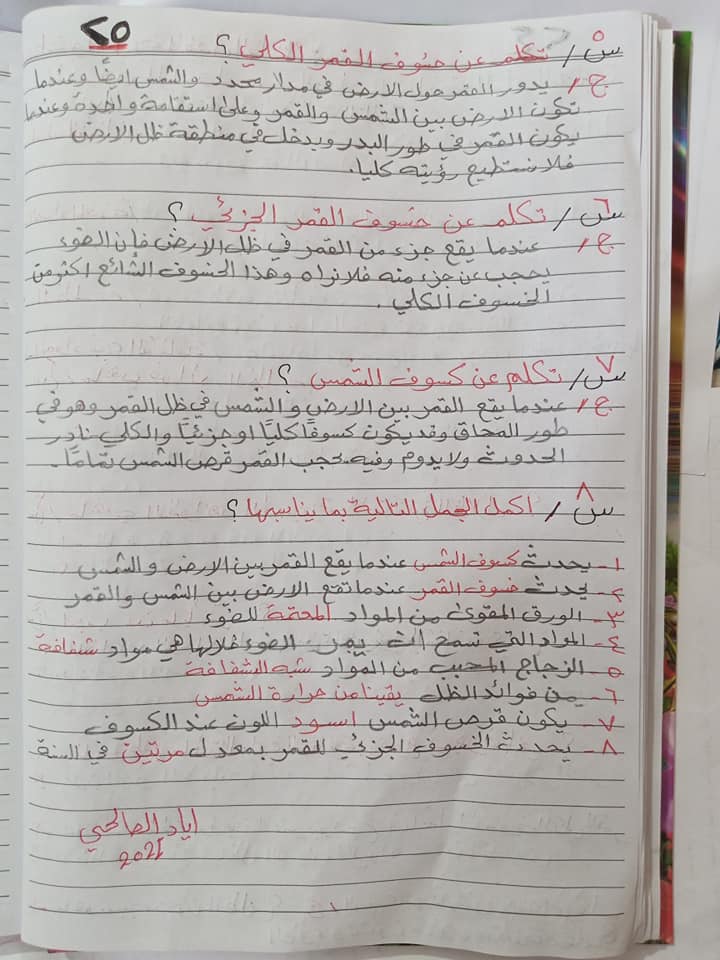 ٢٥
س٥/ تكلم عن خسوف القمر الكلي؟
ج/ يدور القمر حول الارض في مدار محدد والشمس ايضًا وعندما
تكون الارض بين الشمس والقمر وعلى استقامة واحدة وعندما
يكون القمر في طور البدر ويدخل في منطقة ظل الارض
فلا نستطيع رؤيته كليا.
س٦/ تكلم عن خسوف القمر الجزئي؟
ج/ عندما يقع جزء من القمر في ظل الارض فإن الضوء
يحجب عن جزء منه فلا نراه وهذا الخسوف الشائع اكثر من
الخسوف الكلي.
س٧/ تكلم عن كسوف الشمس ؟
ج/ عندما يقع القمر بين الارض والشمس في ظل القمر وهو في
طور المحاق وقد يكون كسوفًا كليًا او جزئيًا والكلي نادر
الحدوث ولا يدوم وفيه يحجب القمر قرص الشمس تمامًا.
س٨/ اكمل الجمل التالية بما يناسبها؟
١- يحدث كسوف الشمس عندما يقع القمر بين الارض والشمس
٢- يحدث خسوف القمر عندما تقع الارض بين الشمس والقمر
٣- الورق المقوى من المواد المعتمة للضوء
٤- المواد التي تسمح ان يمر الضوء خلالها هي مواد شفافة
٥- الزجاج المحبب من المواد شبه الشفافة
٦- من فوائد الظل يقينا من حرارة الشمس
٧- يكون قرص الشمس اسود اللون عند الكسوف
٨- يحدث الخسوف الجزئي للقمر بمعدل مرتين في السنة
اياد الصالحي
2021